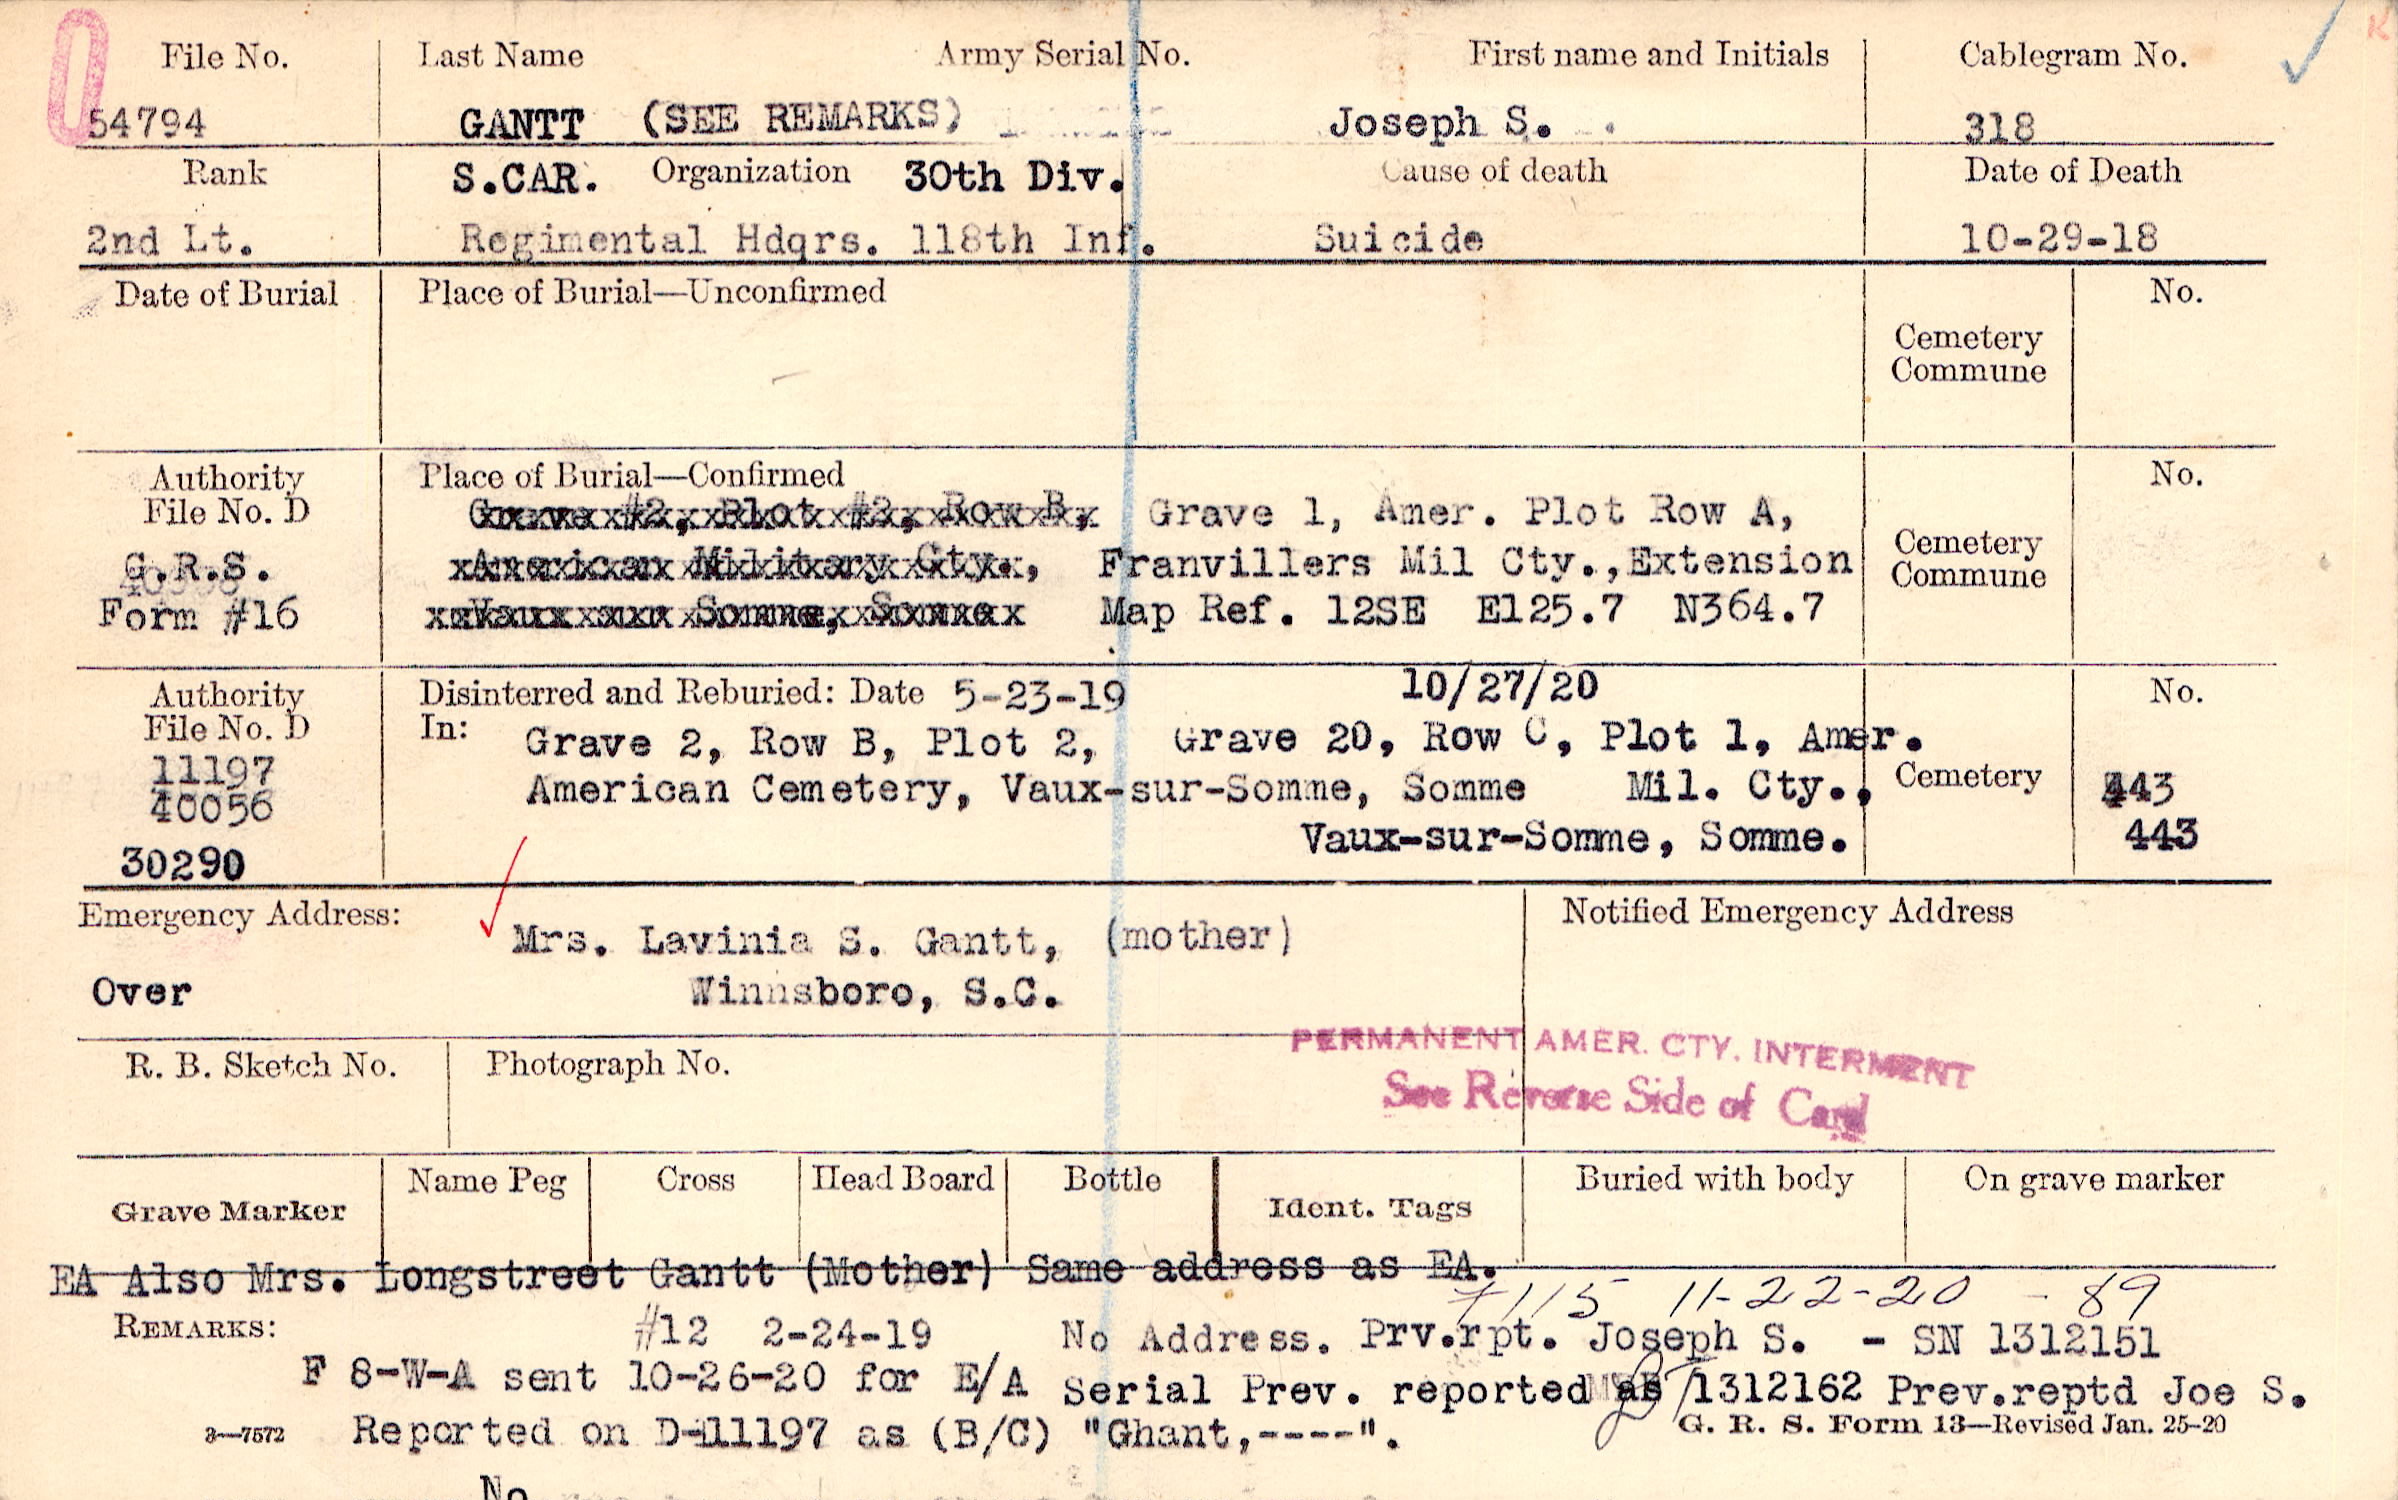 File No. Last Name Army Serial No. First name and Initials Cablegram No.
54794 GANTT (SEE REMARKS) Joseph S. 318
Rank S.CAR. Organization 30th Div. Cause of death Date of Death
2nd Lt. Regimental Hdqrs. 118th Inf. Suicide 10-29-18
Date of Burial Place of Burial—Unconfirmed No.
Cemetery
Commune
Authority Place of Burial—Confirmed No.
File No. D Grave #2, Plot #2, Row B, Grave 1, Amer. Plot Row A,
G.R.S. American Military Cty., Franvillers Mil Cty.,Extension Cemetery
Commune
Form #16 Vaux sur Somme, Somme Map Ref. 12SE E125.7 N364.7
Authority Disinterred and Reburied: Date 5-23-19 10/27/20 No.
File No. D In: Grave 2, Row B, Plot 2, Grave 20, Row C, Plot 1, Amer.
11197
40056 American Cemetery, Vaux-sur-Somme, Somme Mil. Cty., Cemetery 443
30290 Vaux-sur-Somme, Somme. 443
Emergency Address: Notified Emergency Address
Mrs. Lavinia S. Gantt, (mother)
Over Winnsboro, S.C.
PERMANENT AMER. CTY. INTERMENT
See Reverse Side of Card
R. B. Sketch No. Photograph No.
Grave Marker Name Peg Cross Head Board Bottle Ident. Tags Buried with body On grave marker
EA Also Mrs. Longstreet Gantt (Mother) Same address as EA.
7115 11-22-20 - 89
REMARKS: #12 2-24-19 No Address. Prv.rpt. Joseph S. - SN 1312151
F 8-W-A sent 10-26-20 for E/A Serial Prev. reported as 1312162 Prev.reptd Joe S.
3—7572 Reported on D-11197 as (B/C) "Ghant,----". G. R. S. Form 13—Revised Jan. 25-20
No